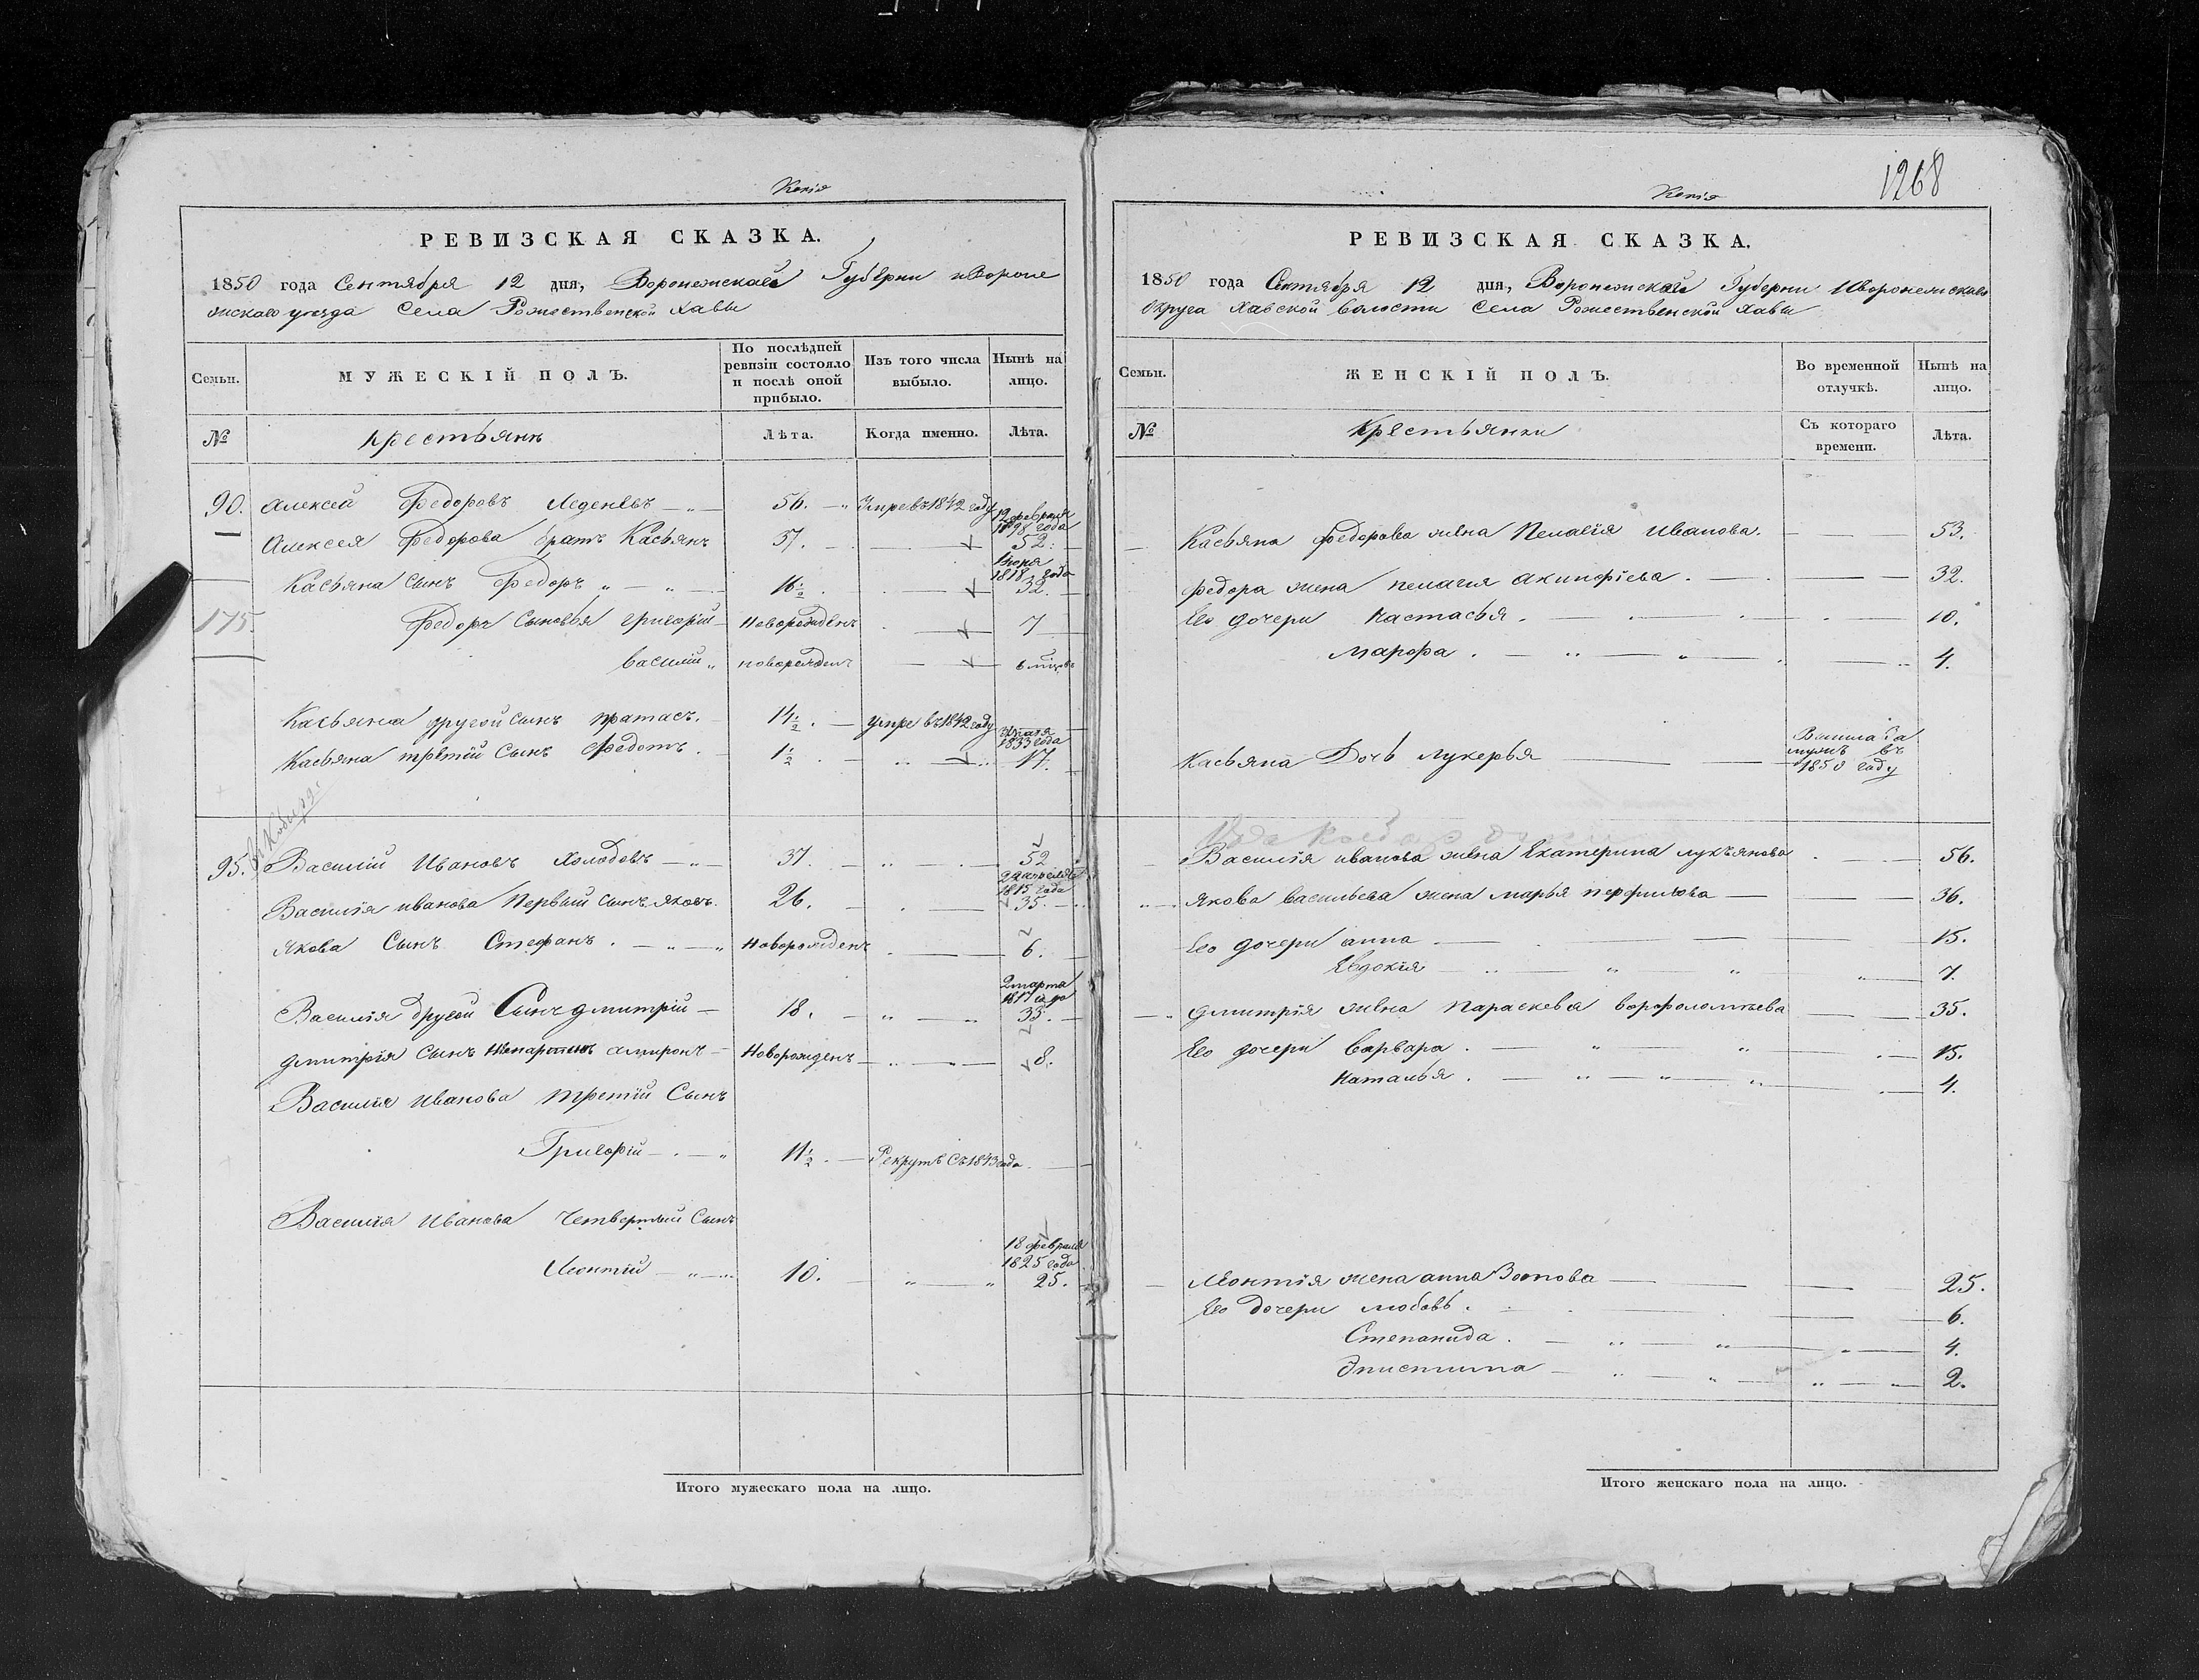 Копія
РЕВИЗСКАЯ СКАЗКА.
1850 года Сентября 12 дня, Воронежской Губерни и Вороне
жскаго уезда Села Рожественской Хавы
Семьи.
МУЖЕСКІЙ ПОЛЪ.
По послѣдней ревизіи состояло и послѣ оной прибыло.
Изъ того числа выбыло.
Нынѣ на лицо.
№
крестьянъ
Лѣта.
Когда именно.
Лѣта.
90. Алексей Федоровъ Леденевъ 56. Умре въ 1842 году
12 февраля
1798 года
Алексея Федорова братъ Касьянъ 37. 52.
1818 года
Касьяна сынъ Федоръ 16½ 32.
175.
Федора Сыновья григорій Новорожденъ 7
василій новорожденъ 6 мцовъ
Касьяна другой сынъ 14½. умре въ 1842 году
1833 года
Касьяна третій сынъ Федотъ. 1½ 17.
95. Василій Ивановъ Холодовъ 37. 52
22 апреля
1815 года
Василія иванова первый сынъ яковъ. 26. 35.
Якова Сынъ Стефанъ. Новорожденъ 6.
2 марта
1817 года
Василія другой Сынъ дмитрій 18. 33.
дмитрія сынъ Новорожденъ 8.
Василія Иванова третій Сынъ
Григорій 11½. Рекрутъ съ 1843 года
Василія Иванова Четвертый Сынъ
18 февраля
1825 года
Леонтій 10. 25.
Итого мужескаго пола на лицо.
Копія
1268
РЕВИЗСКАЯ СКАЗКА.
1850 года Сентября 12 дня, Воронежской Губерни Иворонежскаго
Округа Хавской Волости Села Рожественской Хавы
Семьи.
ЖЕНСКІЙ ПОЛЪ.
Во временной отлучкѣ.
Нынѣ на лицо.
№
Крестьянки
Съ котораго времени.
Лѣта.
Касьяна федорова жена Пелагія Иванова. 53.
федора жена пелагия акинфіева. 32.
Его дочери Настасья. 10.
Марфа. 4.
Касьяна Дочь лукерья
Вышла за
мужъ въ
1850 году
Василія иванова жена Екатерина лукъянова 56.
Якова васильева жена марья перфилова 36.
Его дочери анна 15.
Евдокія 7.
дмитрія жена Параскева ворфоломѣева 35.
Его дочери варвара. 15.
Наталья. 4.
Леонтія жена анна Зотова 25.
Его дочери любовь. 6.
Степанида. 4.
2.
Итого женскаго пола на лицо.